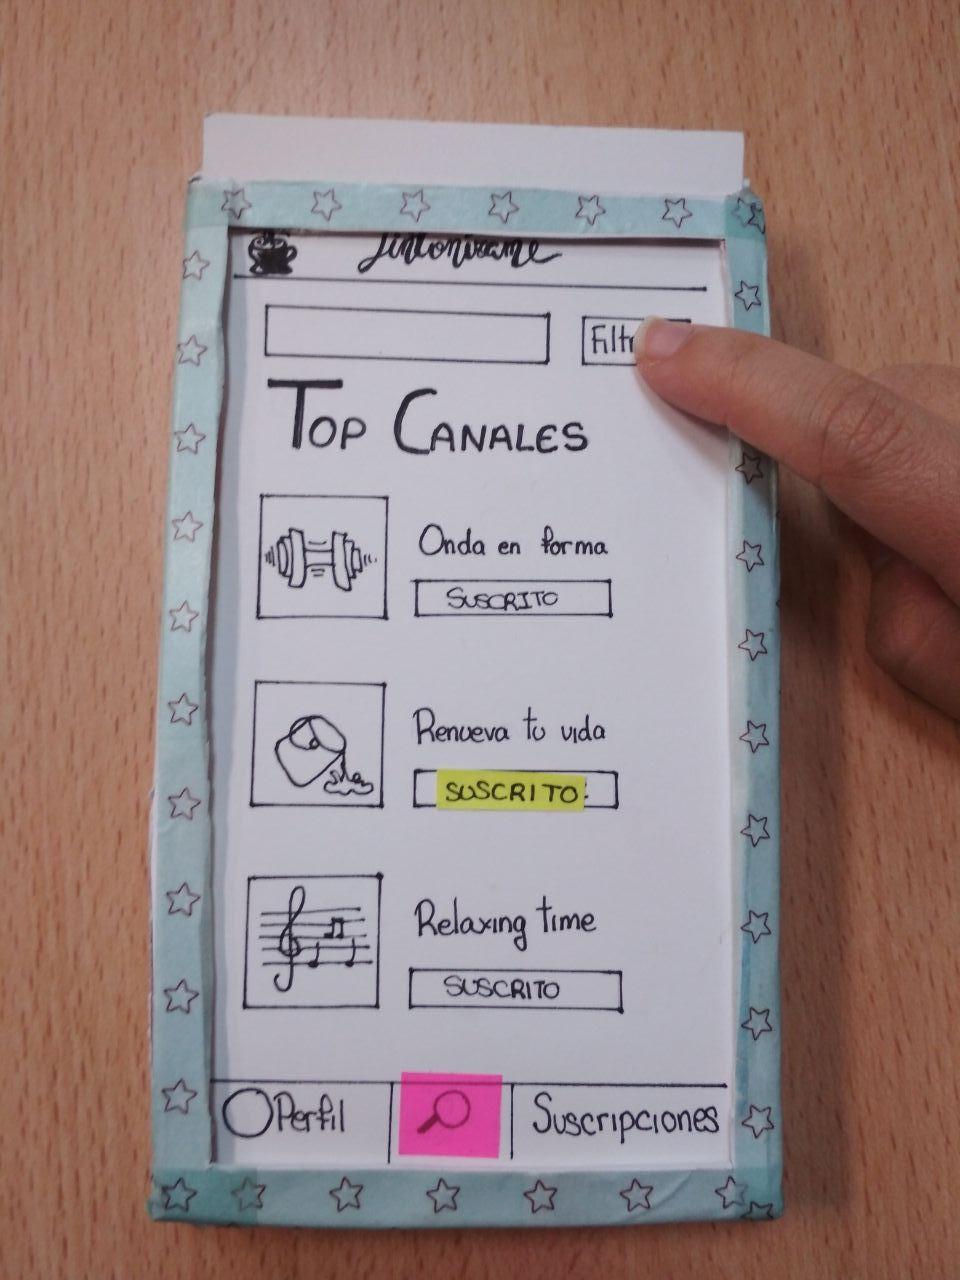 Sintonízame
Filtr
TOP CANALES
Onda en forma
SUSCRITO
Renueva tu vida
SUSCRITO
Relaxing time
SUSCRITO
Perfil
Suscripciones